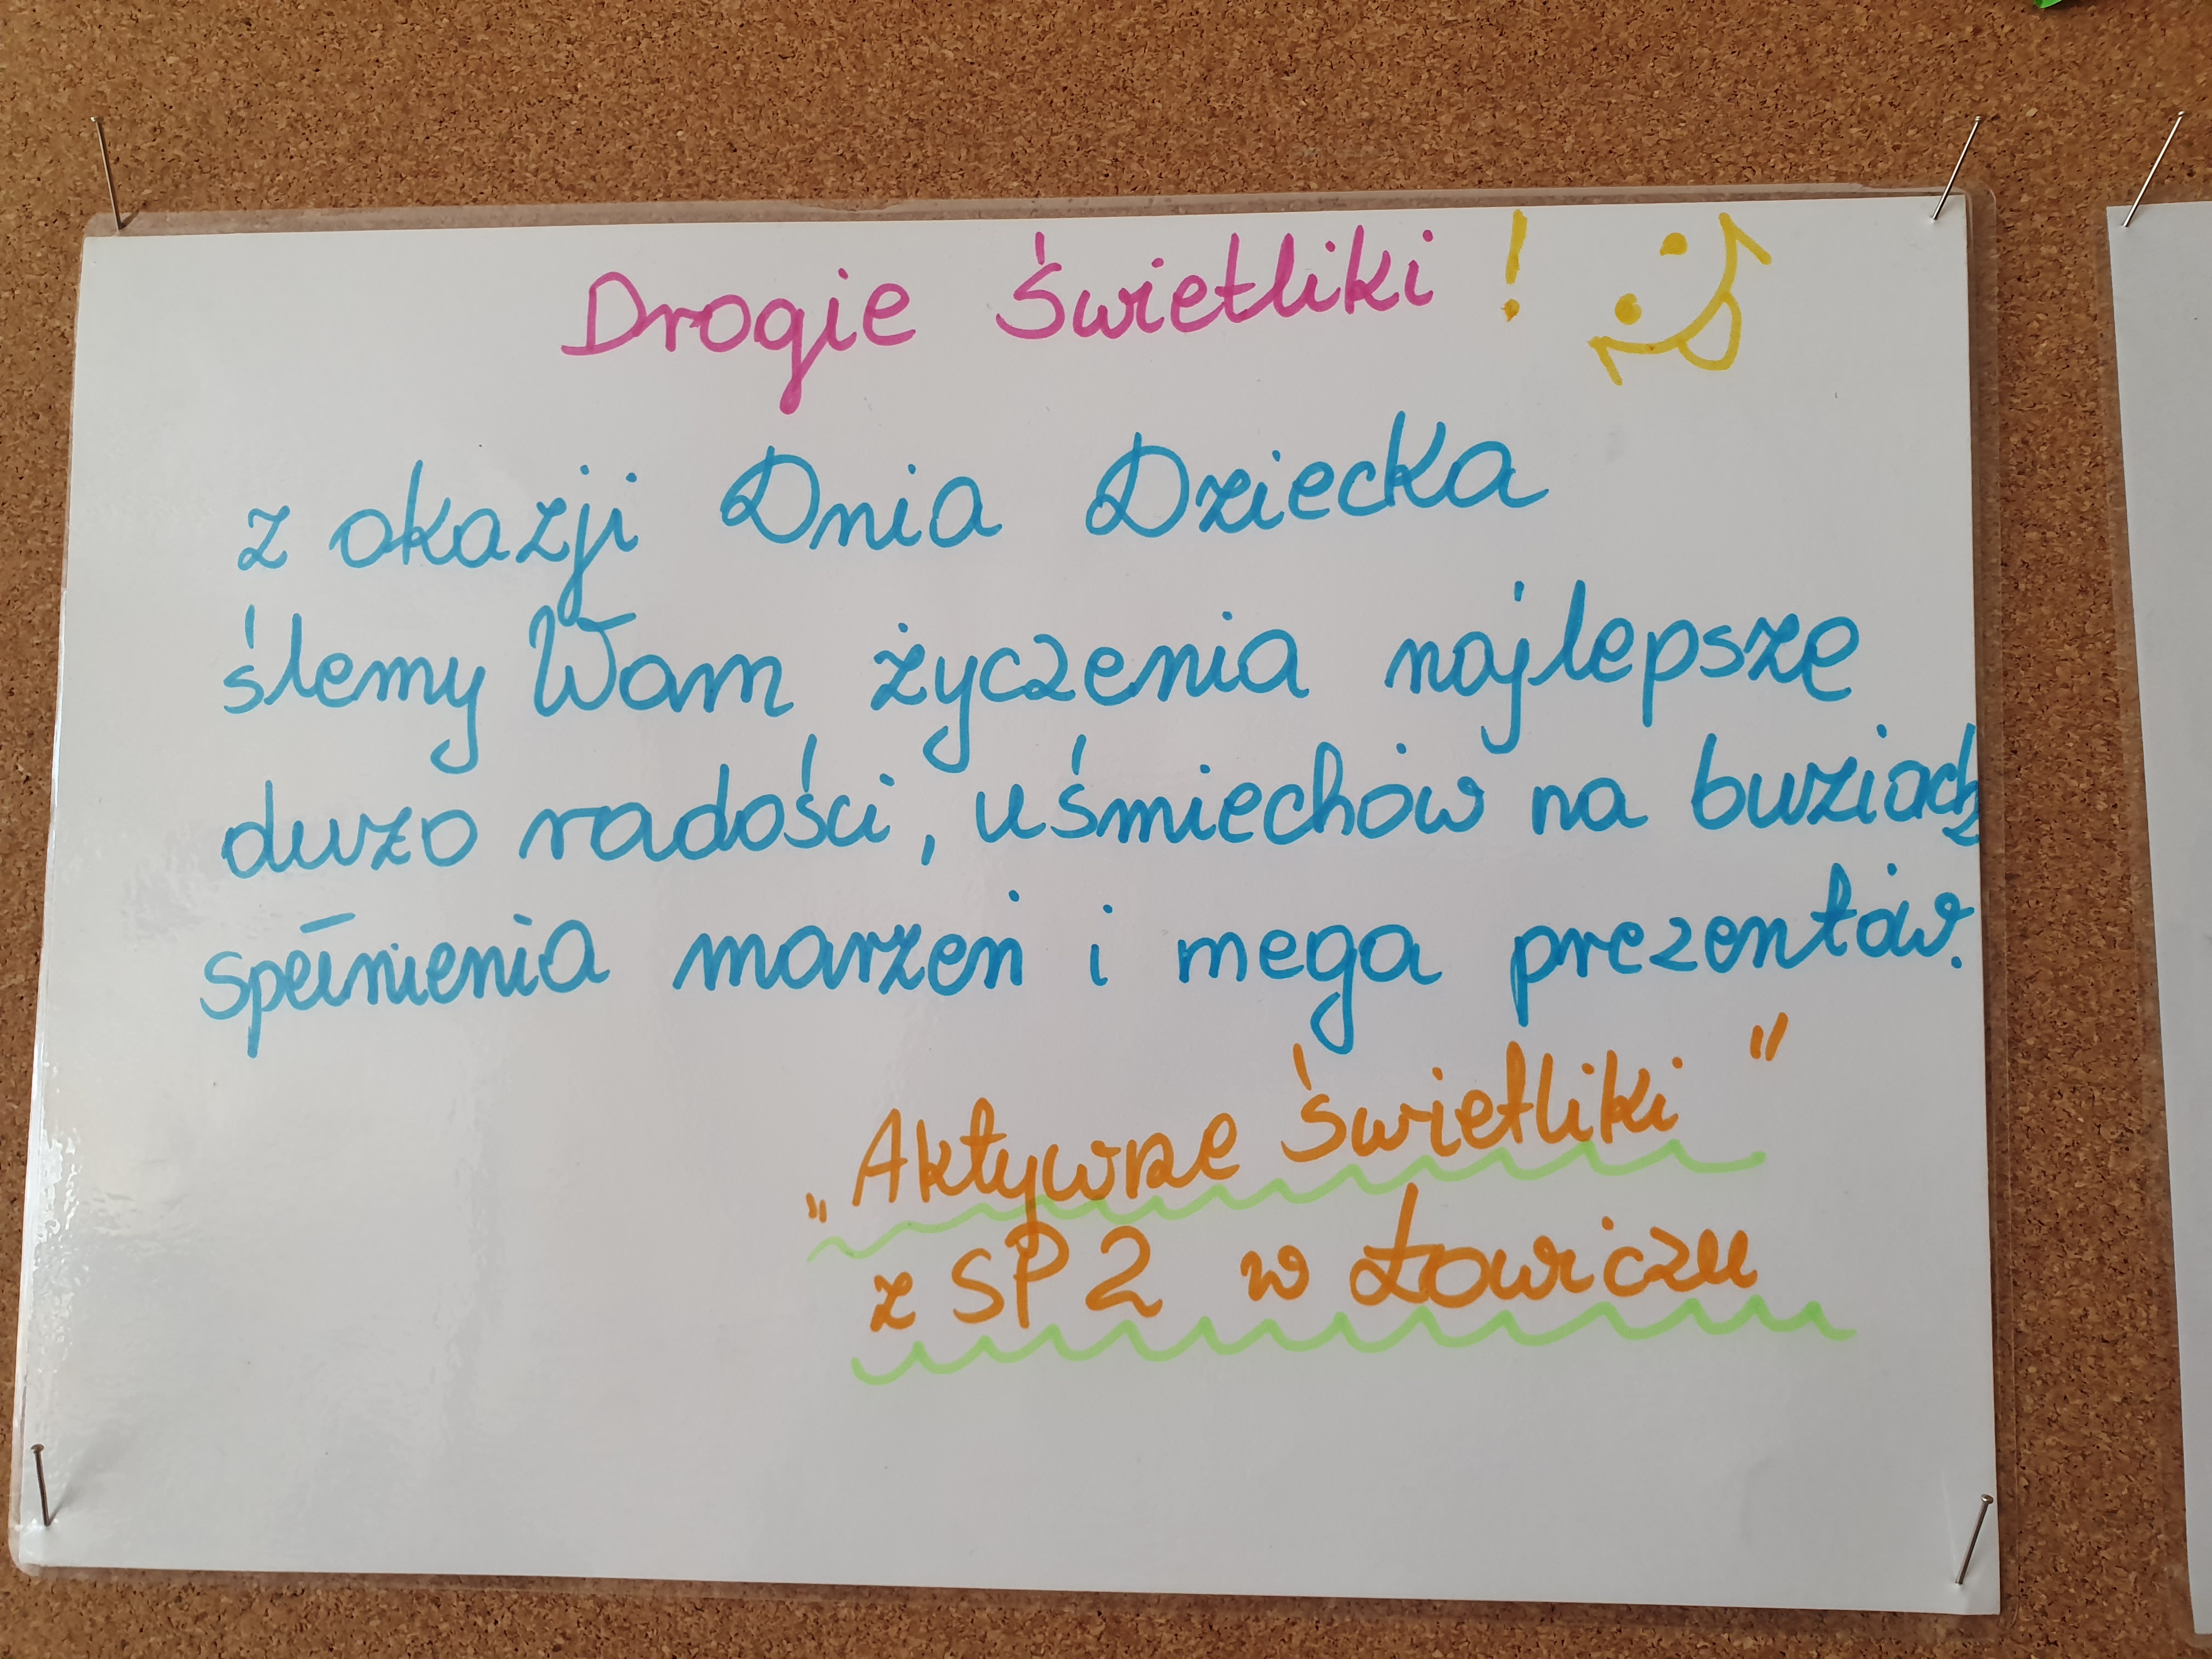 Drogie Świetliki!
z okazji Dnia Dziecka
ślemy Wam życzenia najlepsze
dużo radości, uśmiechów na buziach,
spełnienia marzeń i mega prezentów.
„Aktywne Świetliki"
z SP 2 w Łowiczu